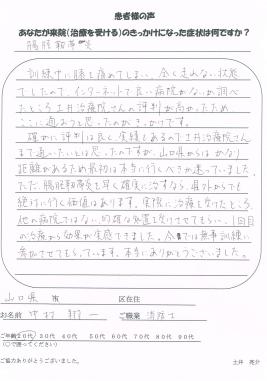 患者様の声
あなたが来院(治療を受ける)のきっかけになった症状は何ですか?
腸脛靭帯炎
訓練中に膝を痛めてしまい、全く走れない状態
でしたので、インターネットで良い病院がないか調べ
たところ土井治療院さんの評判が高かったため
ここに通おうと思ったのがきっかけです。
確かに評判は良く、実績もあるので土井治療院さん
まで通いたいとは思ったのですが、山口県からはかなり
距離があるため最初は本当に行くべきか迷っていました
ただ、腸脛靭帯炎を早く確実に治すなら、県外からでも
絶対に行く価値はあります。実際に治療を受けたところ
他の病院ではない、的確な処置を受けさせてもらい、1回目
の治療から効果が実感できました。今では無事訓練に
参加させてもらっています。本当にありがとうございました。
山口県 市 区在住
お名前 中村 翔一 ご職業 消防士
ご年齢 20代 30代 40代 50代 60代 70代 80代 90代
(○で囲ってください)
ご協力ありがとうございました。 土井 亮介